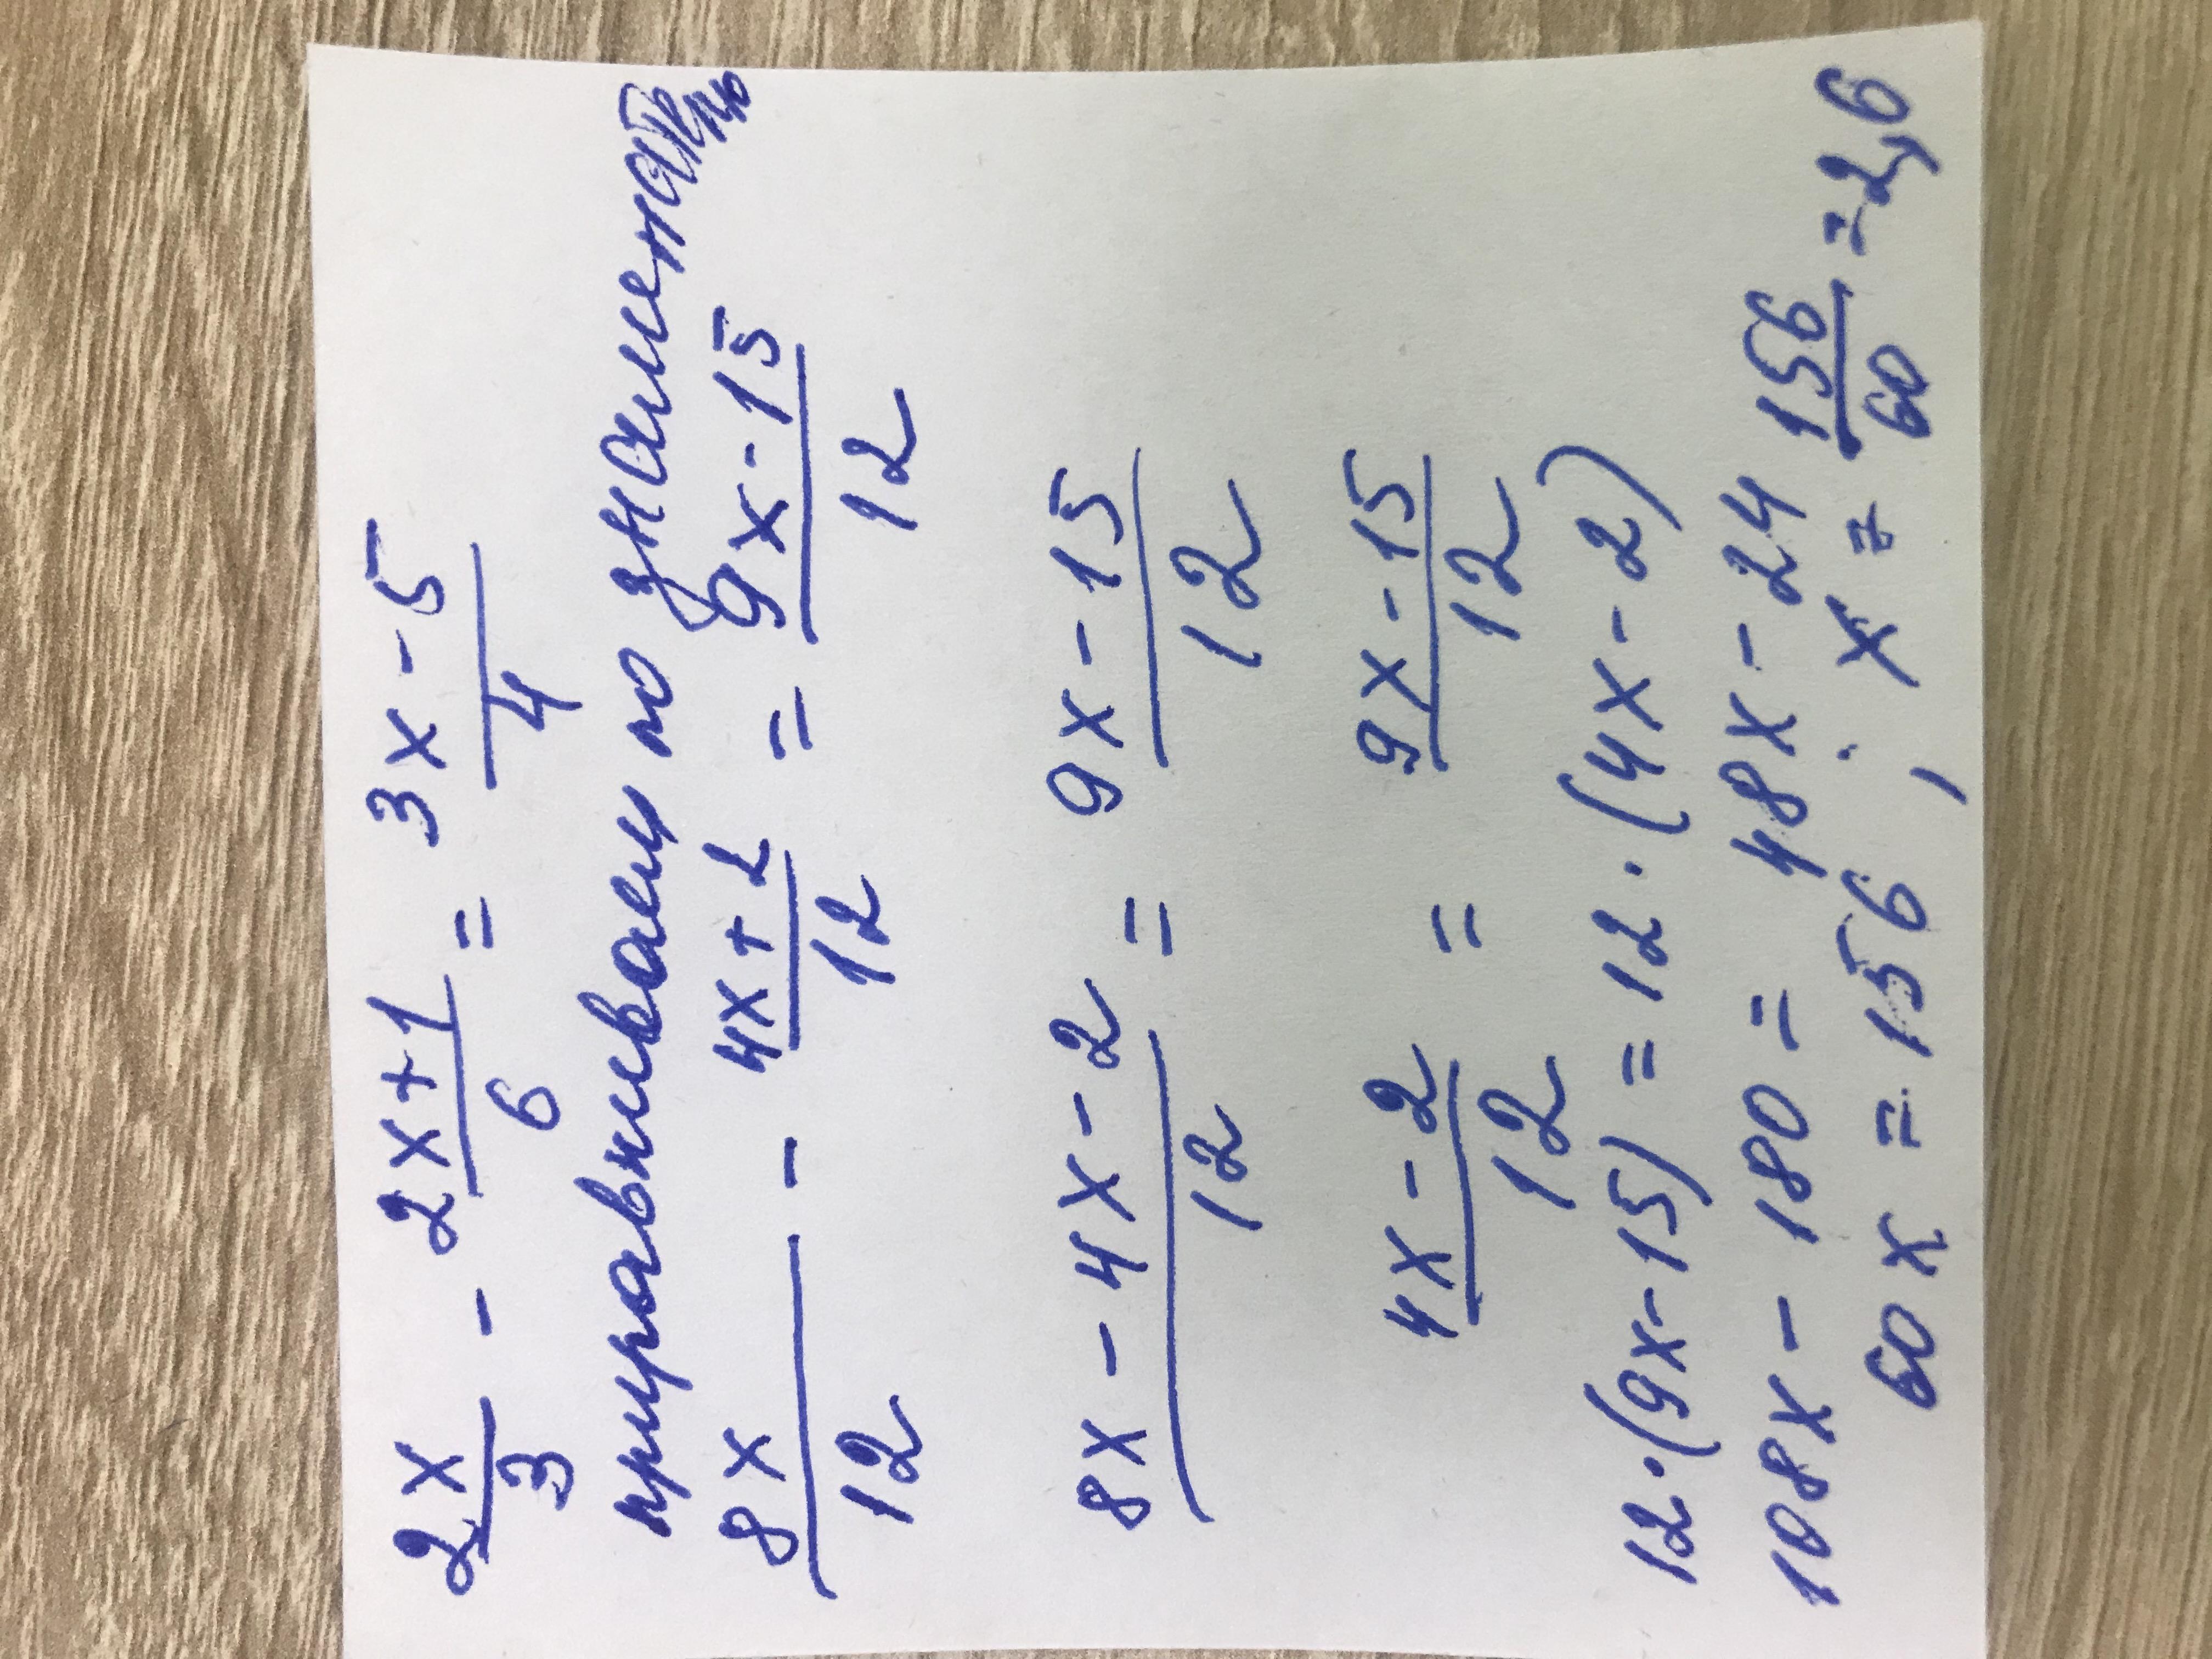 2x/3 - 2x+1/6 = 3x-5/4
приравниваем по знаменателю
8x/12 - 4x+2/12 = 9x-15/12
8x-4x-2/12 = 9x-15/12
4x-2/12 = 9x-15/12
12·(9x-15)=12·(4x-2)
108x-180=48x-24
60x=156; x=156/60=2,6